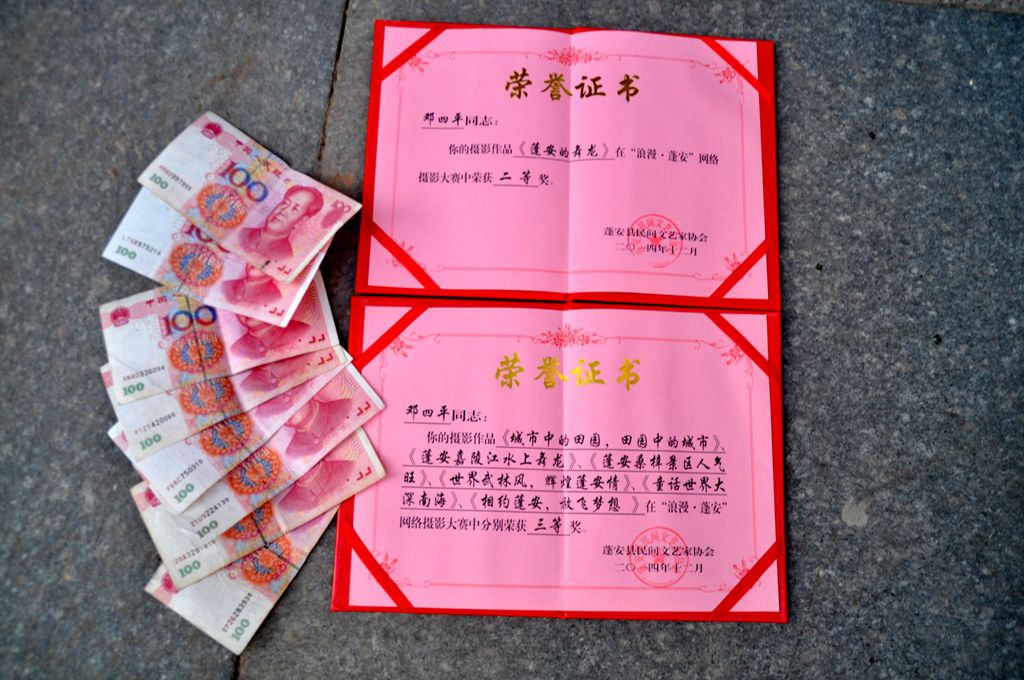 荣誉证书
邓四平同志：
你的摄影作品《蓬安的舞龙》在“浪漫·蓬安”网络
摄影大赛中荣获二等奖。
蓬安县民间文艺家协会
二〇一四年十二月
荣誉证书
邓四平同志：
你的摄影作品《城市中的田园，田园中的城市》、
《蓬安嘉陵江水上舞龙》、《蓬安桑梓景区人气
旺》、《世界武林风，辉煌蓬安情》、《童话世界大
深南海》、《相约蓬安，放飞梦想 》在“浪漫·蓬安”
网络摄影大赛中分别荣获三等奖。
蓬安县民间文艺家协会
二〇一四年十二月
100
100
100
100
100
100
100
100
100
100
100